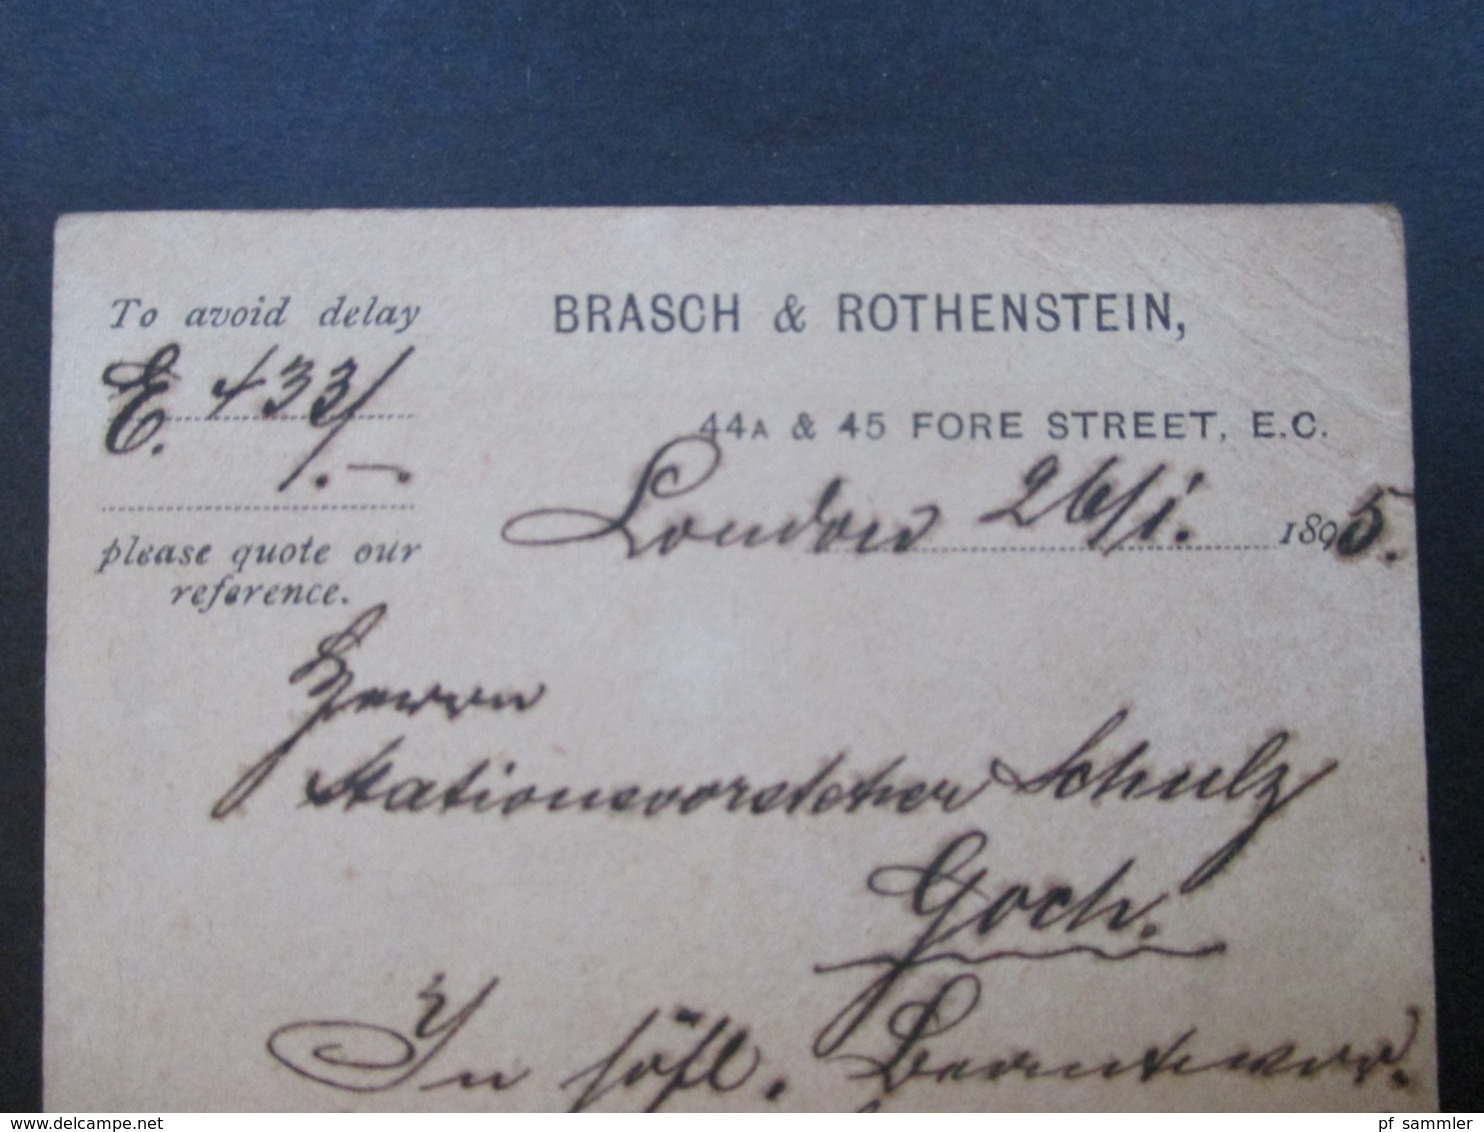 To avoid delay
E. 433/1.–
please quote our
reference.
BRASCH & ROTHENSTEIN,
44A & 45 FORE STREET, E.C.
London 26/1. 1895.
Herrn
Stationsvorsteher Schulz
Goch.
In höfl. Beantwor-
delcampe.net
pf_sammler